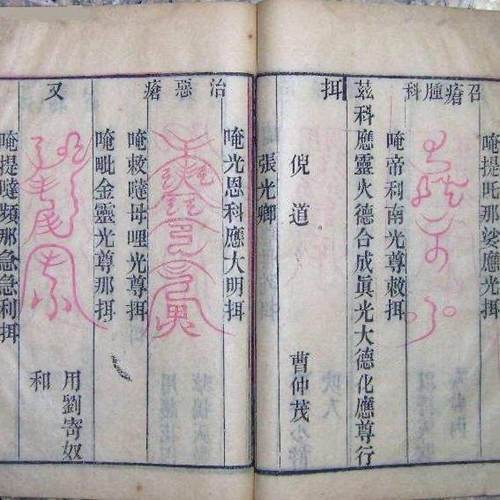 召瘡腫科
唵提呬那娑應光挕
唵帝利南光尊敕挕
茲科應靈火德合成眞光大德化應尊行
挕
倪道
曹仲茂
張光卿
治惡瘡
唵光恩科應大明挕
唵敕噠母哩光尊挕
又
唵毗金靈光尊那挕
用劉寄奴
和
唵提噠頻那急急利挕